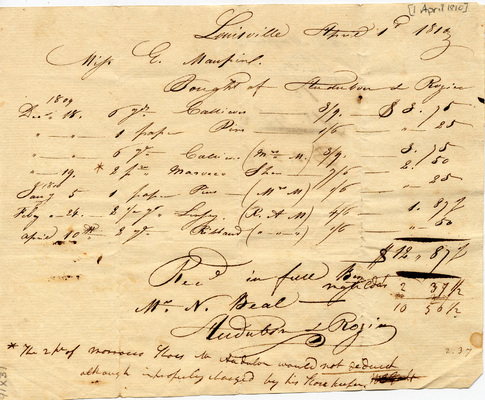 [1 April 1810]
Louisville April 1st 1810
Miss E. Maupins.
Bought of Audubon & Rozier
1809
Dec. 18. 6 yds Calicoe 3/9. $ 3.75
" " 1 paper Pins 1/6 " 25
" " 6 yds Calicoe (Mrs M.) 3/9. 3.75
" 19. * 2 prs Morocco Shoes 7/6 2.50
1810
Jany 5 1 paper Pins (Mrs M) 1/6 " 25
Feby 24. (R. & M) 4/6 1.87½
April 10th 2 yds Ribband 1/6 " 50
$ 12 " 87½
Recd in full 2 37½
Mr. N. Beal 10 50½
Audubon & Rozier
* The 2 prs of morocco shoes Mr Audubon would not deduct
although improperly charged by his Store keeper
2.37